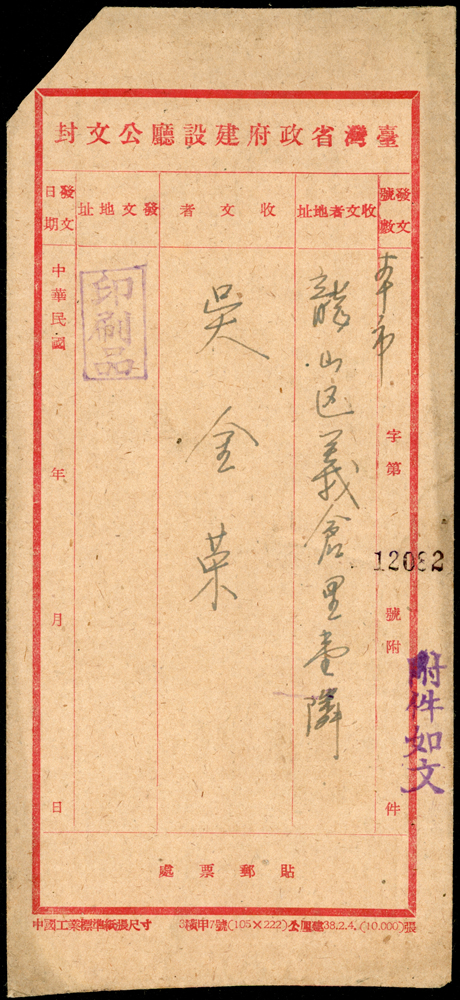 臺灣省政府建設廳公文封
發文號數
字第
12082
號附
件
附件如文
收文者地址
本市
龍山区義倉里壹隣
收文者
吳金荣
發文地址
印刷品
發文日期
中華民國
年
月
日
貼郵票處
中國工業標準紙張尺寸
甲7號(105×222) 38.2.4.(10.000)張